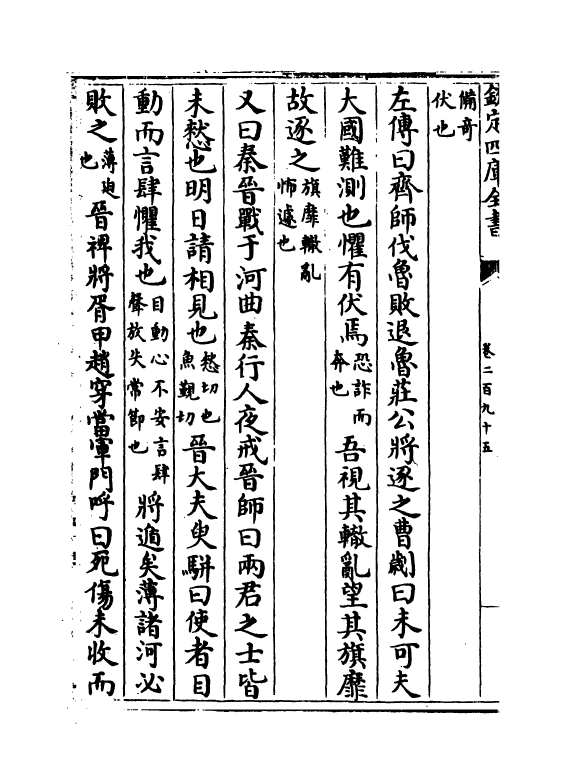 欽定四庫全書
卷二百九十五
備奇
伏也
左傳曰齊師伐魯敗退魯莊公將逐之曹劌曰未可夫
大國難測也懼有伏焉恐詐而奔也吾視其轍亂望其旗靡
故逐之旗靡轍亂怖遽也
又曰秦晉戰于河曲秦行人夜戒晉師曰兩君之士皆
未憖也明日請相見也憖切也魚覲切晉大夫臾駢曰使者目
動而言肆懼我也目動心不安言肆聲放失常節也將遁矣薄諸河必
敗之薄廹也晉裨將胥甲趙穿當軍門呼曰死傷未收而